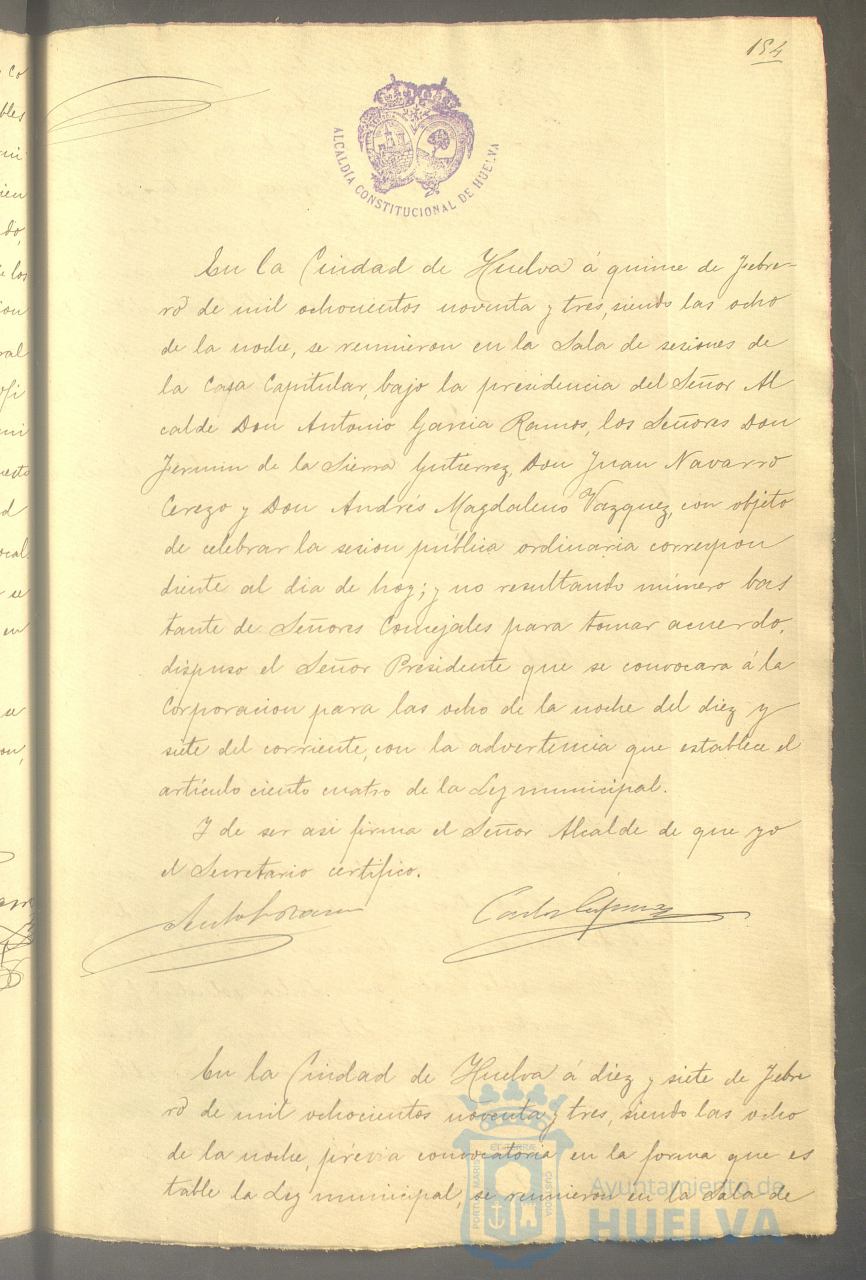 154
ALCALDÍA CONSTITUCIONAL DE HUELVA
En la Ciudad de Huelva á quince de Febre-
ro de mil ochocientos noventa y tres, siendo las ocho
de la noche, se reunieron en la Sala de sesiones de
la Casa Capitular, bajo la presidencia del Señor Al
calde Don Antonio Garcia Ramos, los Señores Don
Fermin de la Sierra Gutierrez, Don Juan Navarro
Cerezo y Don Andrés Magdaleno Vazquez, con objeto
de celebrar la sesion pública ordinaria correspon
diente al dia de hoy; y no resultando número bas
tante de Señores Concejales para tomar acuerdo,
dispuso el Señor Presidente que se convocara á la
Corporacion para las ocho de la noche del diez y
siete del corriente, con la advertencia que establece el
artículo ciento cuatro de la Ley municipal.
Y de ser asi firma el Señor Alcalde de que yo
el Secretario certifico.
En la Ciudad de Huelva á diez y siete de Febre
ro de mil ochocientos noventa y tres, siendo las ocho
de la noche, prévia convocatoria en la forma que es
table la Ley municipal, se reunieron en la Sala de
PORTUS MARIS ET TERRÆ CUSTODIA
Ayuntamiento de
HUELVA